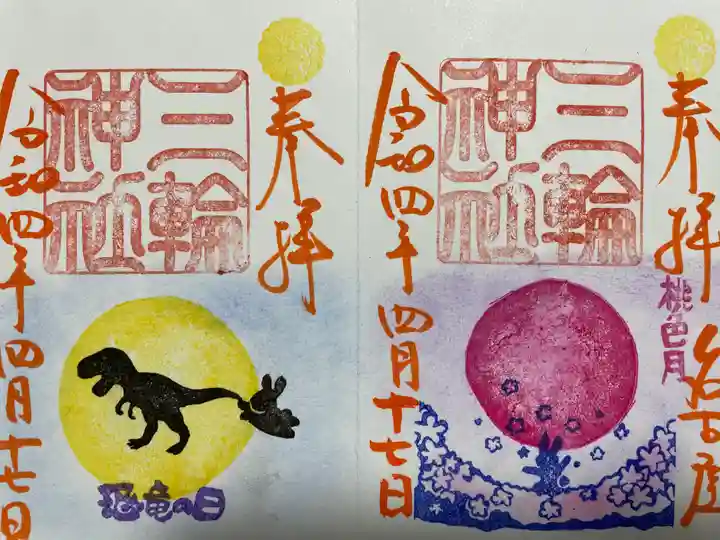 奉拝
三輪
神社
令和四年四月十七日
恐竜の日
奉拝 名古屋
三輪
神社
桃色月
令和四年四月十七日